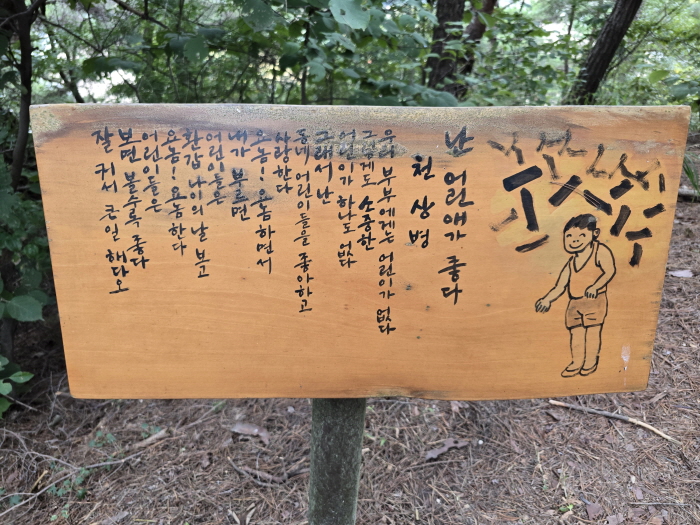 난 어린애가 좋다
천상병
우리 부부에게는 어린이가 없다
그렇게도 소중한
어린이가 하나도 없다
그래서 난
동네 어린이들을 좋아하고
사랑한다
요놈! 요놈 하면서
내가 부르면
어린이들은
환갑 나이의 날 보고
요놈! 요놈한다
어린이들은
보면 볼수록 좋다
잘 커서 큰일 해다오